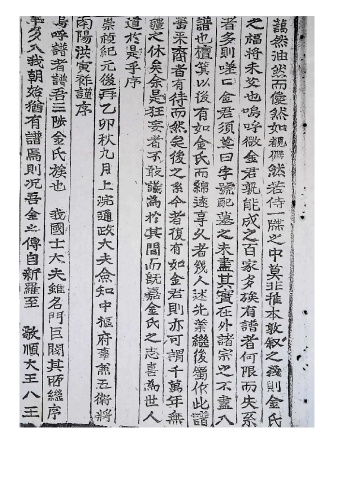 藹然油然而僾然如覩儼然若侍一牒之中莫非推本敦叙之義則金氏
之福將未艾也嗚呼微金君孰能成之百家多族有譜者何限而失系
者多則嗟□金君須莫曰字號配墓之未盡其實在外諸宗之不盡入
譜也檀其以後有如金氏而綿遠享久者幾人述先業繼後燭依此譜
當來裔者有待而然矣後之系今者復有如金君則亦可謂千萬年無
疆之休矣余是狂妄者不敢議爲於其間而旣嘉金氏之志喜爲世人
道於是乎序
崇禎紀元後再乙卯秋九月上浣通政大夫僉知中樞府事兼五衛將
南陽洪寅□謹序
嗚呼譜者譜吾三陟金氏族也 我國士大夫維名門巨閥其所繼序
年多入我朝始猶有譜焉則況吾金之傳自新羅至 敬順大王八王